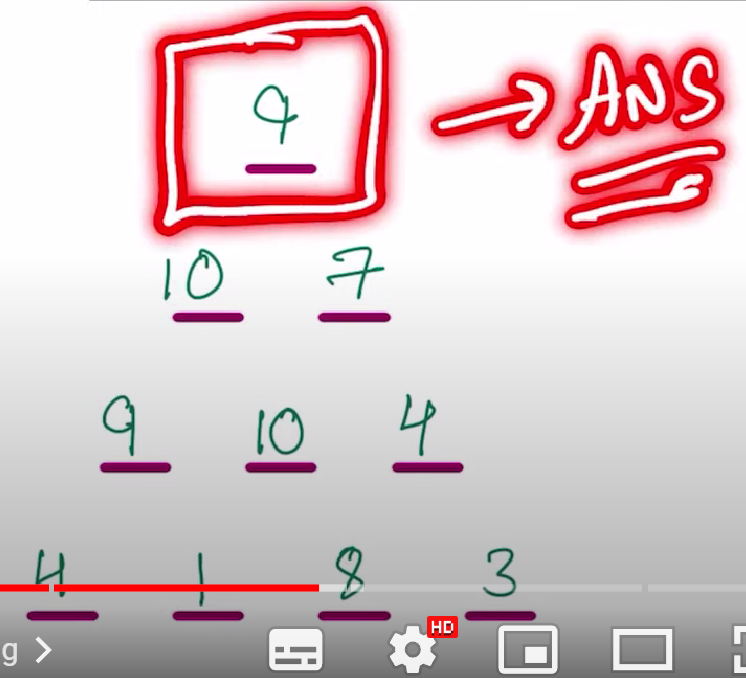 9 → ANS
10 7
9 10 4
4 1 8 3
g > HD